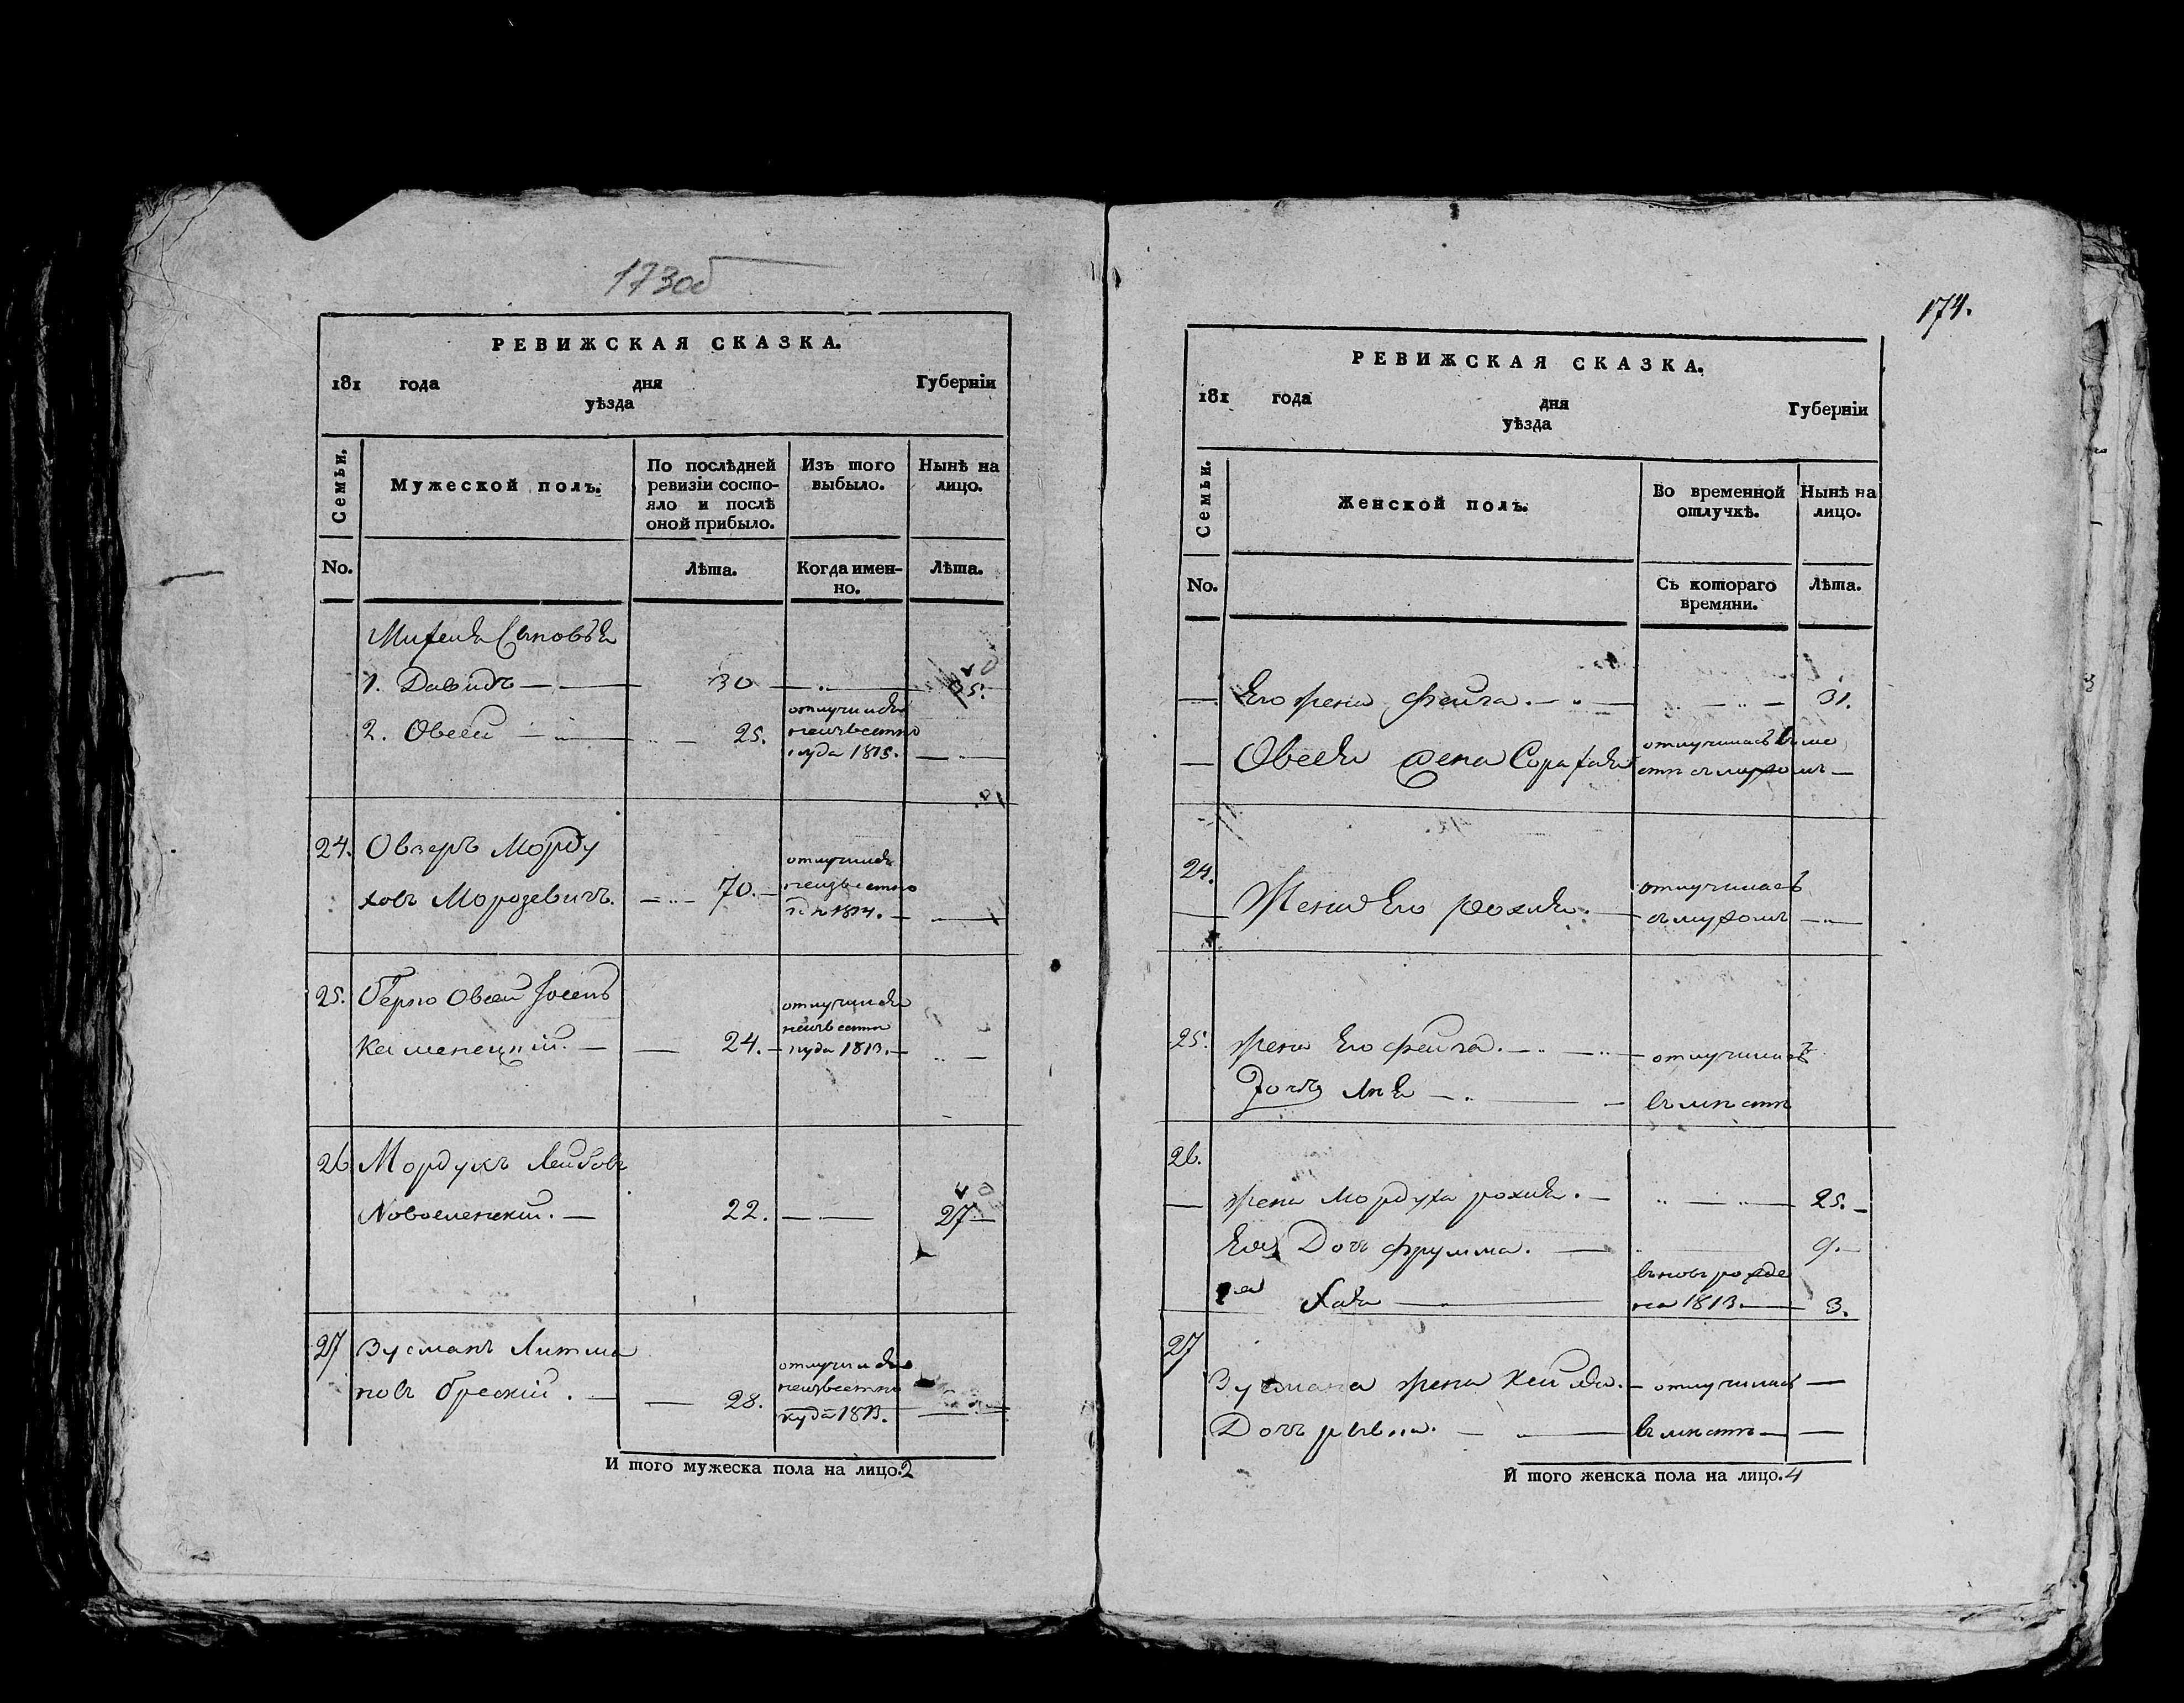 173об
РЕВИЖСКАЯ СКАЗКА.
181 года дня Губерніи
уѣзда
Семьи.
Мужеской полъ.
По послѣдней ревизіи состо-
яло и послѣ
оной прибыло.
Изъ того
выбыло.
Нынѣ на
лицо.
No.
Лѣта.
Когда имен-
но.
Лѣта.
Сыновья
1. Давидъ — 30 — 35.
2. Овсей — 25. отлучился
неизвестно
куда 1815.
24. Овзеръ Морду
ховъ Морозевичъ. — 70. — отлучился
неизвестно
где 1814.
25. Берко Овсей
Каменецкій. — 24. — отлучился
неизвестно
куда 1813.
26 Мордухъ Лейбовъ
Новоеленскій. — 22. — 27
27 Зусманъ Литма
новъ брескій. — 28. отлучился
неизвестно
куда 1813.
И того мужеска пола на лицо. 2
174.
РЕВИЖСКАЯ СКАЗКА.
181 года дня Губерніи
уѣзда
Семьи.
Женской полъ.
Во временной
отлучкѣ.
Нынѣ на
лицо.
No.
Съ котораго
времяни.
Лѣта.
Его жена Фейга. — 31.
Овсея жена отлучилась вме
сте съ мужомъ —
24.
Жена Его рохля. — отлучилась
съ мужомъ —
25. жена Его фейга. — отлучилась
Дочь — вместе
26.
жена Мордуха рохля. — 25.
Дочь фрумма. — 9.
2я Хая — вновь рожде
на 1813. — 3.
27
Зусмана жена — отлучилась —
Дочь ривка. — вместе —
И того женска пола на лицо. 4